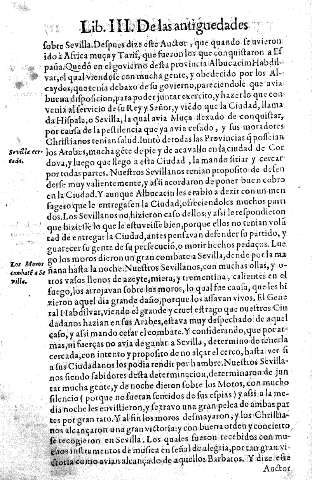 Lib. III. De las antiguedades
sobre Sevilla. Despues dize este Auctor, que quando se uvieron
ido à Africa muça y Tarif, que fueron los que conquistaron a Es
paña. Quedò en el govierno desta provincia Albucacim Habdil-
var, el qual viendose con mucha gente, y obedecido por los Al-
caydes, que tenia debaxo de su govierno, pareciendole que avia
buena disposicion, para poder juntar exercito, y hazer lo que con
venia al servicio de su Rey y Señor, y viédo que la Ciudad, llama
da Hispale, o Sevilla, la qual avia Muça dexado de conquistar,
por causa de la pestilencia que ya avia cesado, y sus moradores
Christianos tenian salud. Iuntò de todas las Provincias q̃ posseian
Sevilla cer-
cada.
los Arabes, mucha géte de pie y de acavallo en la ciudad de Cor
dova, y luego que llego a esta Ciudad, la mando sitiar y cercar
por todas partes. Nuestros Sevillanos tenian proposito de defen
derse muy valientemente, y asi acordaron de poner buen cobro
en la Ciudad. Y aunque Albucacin les enbio a dezir con un men
sagero que le entregasen la Ciudad, ofreciendoles muchos parti
dos. Los Sevillanos no, hizieron caso dellos: y asi le respondieron
que hiziese lo que le estuviese bien, porque ellos no tenian volũ
tad de entregar la Ciudad, antes pensavan defender su partido, y
guarecer su gente de su persecucio, o morir hechos pedaços. Lue
Los Moros
combaté a Se
villa.
go los moros dieron un gran combate a Sevilla, dende por la ma
ñana hasta la noche. Nuestros Sevillanos, con muchas ollas, y o-
tros vasos llenos de azeyte, miera, y trementina, calientes en el
fuego, los arrojavan sobre los moros, lo qual fue causa, que les hi
zieron aquel dia grande daño, porque los asavan vivos. El Gene
ral Habdilvar, viendo el grande y cruel estrago que nuestros Ciu
dadanos hazian en sus Arabes, estava muy despechado de aquel
caso, y asi mando cesar el combate. Y considerando, que por ar-
mas, ni fuerças no avia de ganar a Sevilla, determino de tenerla
cercada, con intento y proposito de no alçar el cerco, hasta ver si
a sus Ciudadanos los podia rendir por hambre. Nuestros Sevilla-
nos siendo sabidores desta determinacion, determinaron de jun
tar mucha gente, y de noche dieron sobre los Moros, con mucho
silencio (porque no fueran sentidos de sus espias) y asi a la me
dia noche les envistieron, y se travo una gran pelea de ambas par
tes por gran rato. Y al fin los moros desmayaron, y los Christia-
nos alcançaron una gran victoria: y con buena orden y concierto
se recogieron en Sevilla. Los quales fueron recebidos con mu-
chos instrumentos de musica en señal de alegria, por tan gran vi-
ctoria como avian alcançado de aquellos Barbaros. Y dize este
Auctor